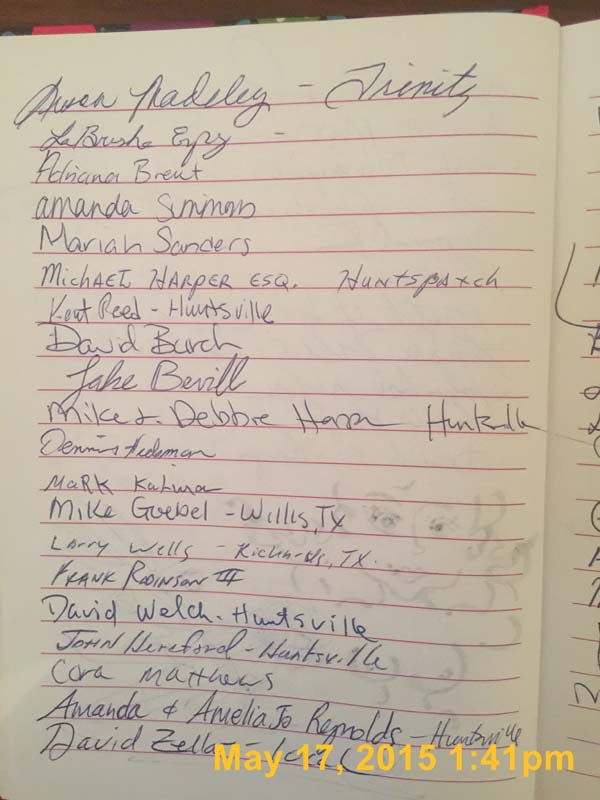 Susan Madeley - Trinity
LaBrusha
Adriana Brent
amanda Simmons
Mariah Sanders
MICHAEL HARPER ESQ. HUNTSPATCH
Kent Reed - Huntsville
David Burch
Jake Bevill
Mike & Debbie Huntsville
Dennis
MARK
Mike Goebel - Willis, TX
Larry Wells - Richards, TX.
FRANK ROBINSON III
David Welch - Huntsville
JOHN Hereford - Huntsville
Cora Matthews
Amanda & Amelia Jo Reynolds - Huntsville
David
May 17, 2015 1:41pm